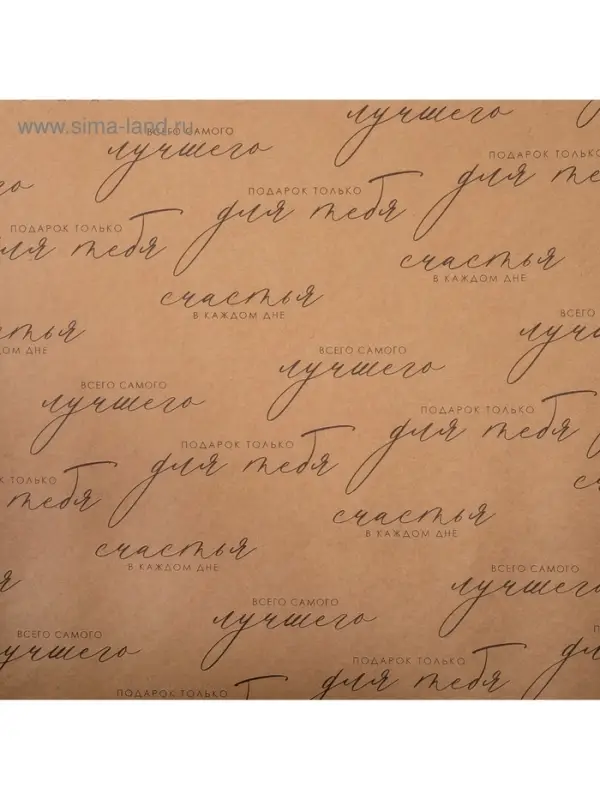 www.sima-land.ru
лучшего
ВСЕГО САМОГО
лучшего
ПОДАРОК ТОЛЬКО
для те
ПОДАРОК ТОЛЬКО
для тебя
ПОДАРОК ТОЛЬКО
для тебя
счастья
В КАЖДОМ ДНЕ
счастья
В КАЖДОМ ДНЕ
ВСЕГО
лучш
стья
ОМ ДНЕ
ВСЕГО САМОГО
лучшего
ВСЕГО САМОГО
лучшего
ПОДАРОК ТОЛЬКО
для тебя
ПОДАРОК ТОЛЬКО
для тебя
К ТОЛЬКО
тебя
сч
счастья
В КАЖДОМ ДНЕ
счастья
В КАЖДОМ ДНЕ
ВСЕГО САМОГО
лучшего
ВСЕГО САМОГО
лучшего
ВСЕГО САМОГО
лучшего
ПОДАРОК ТОЛЬКО
для тебя
ПОДАРОК ТОЛЬКО